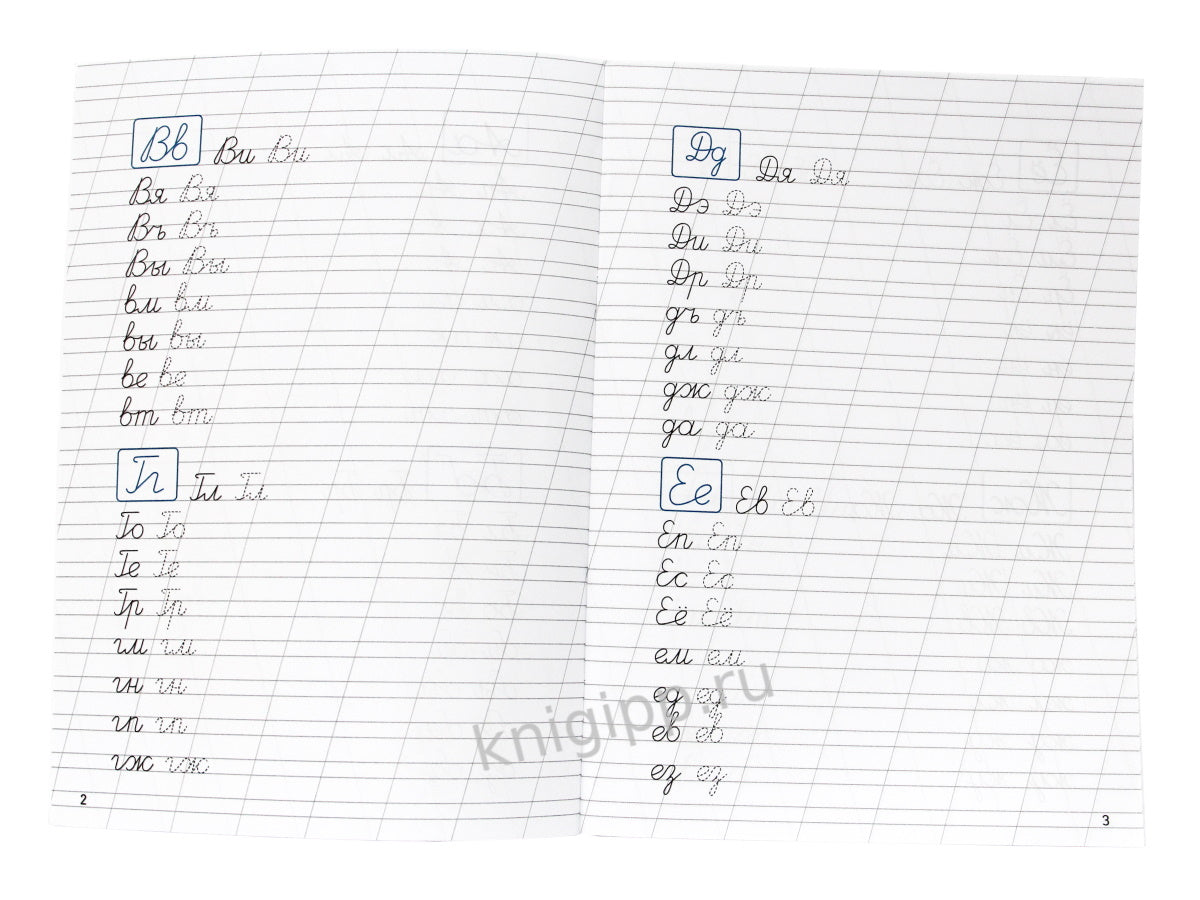 Вв Ви Ви
Вя Вя
Въ Въ
Вы Вы
вм вм
вы вы
ве ве
вт вт
Гг Гл Гл
Го Го
Ге Ге
Гр Гр
гм гм
гн гн
гп гп
гж гж
2
Дд Дя Дя
Дэ Дэ
Ди Ди
Др Др
дъ дъ
дл дл
дж дж
да да
Ее Ев Ев
Еп Еп
Ес Ес
Её Её
ем ем
ед ед
ев ев
ез ез
3
knigipp.ru